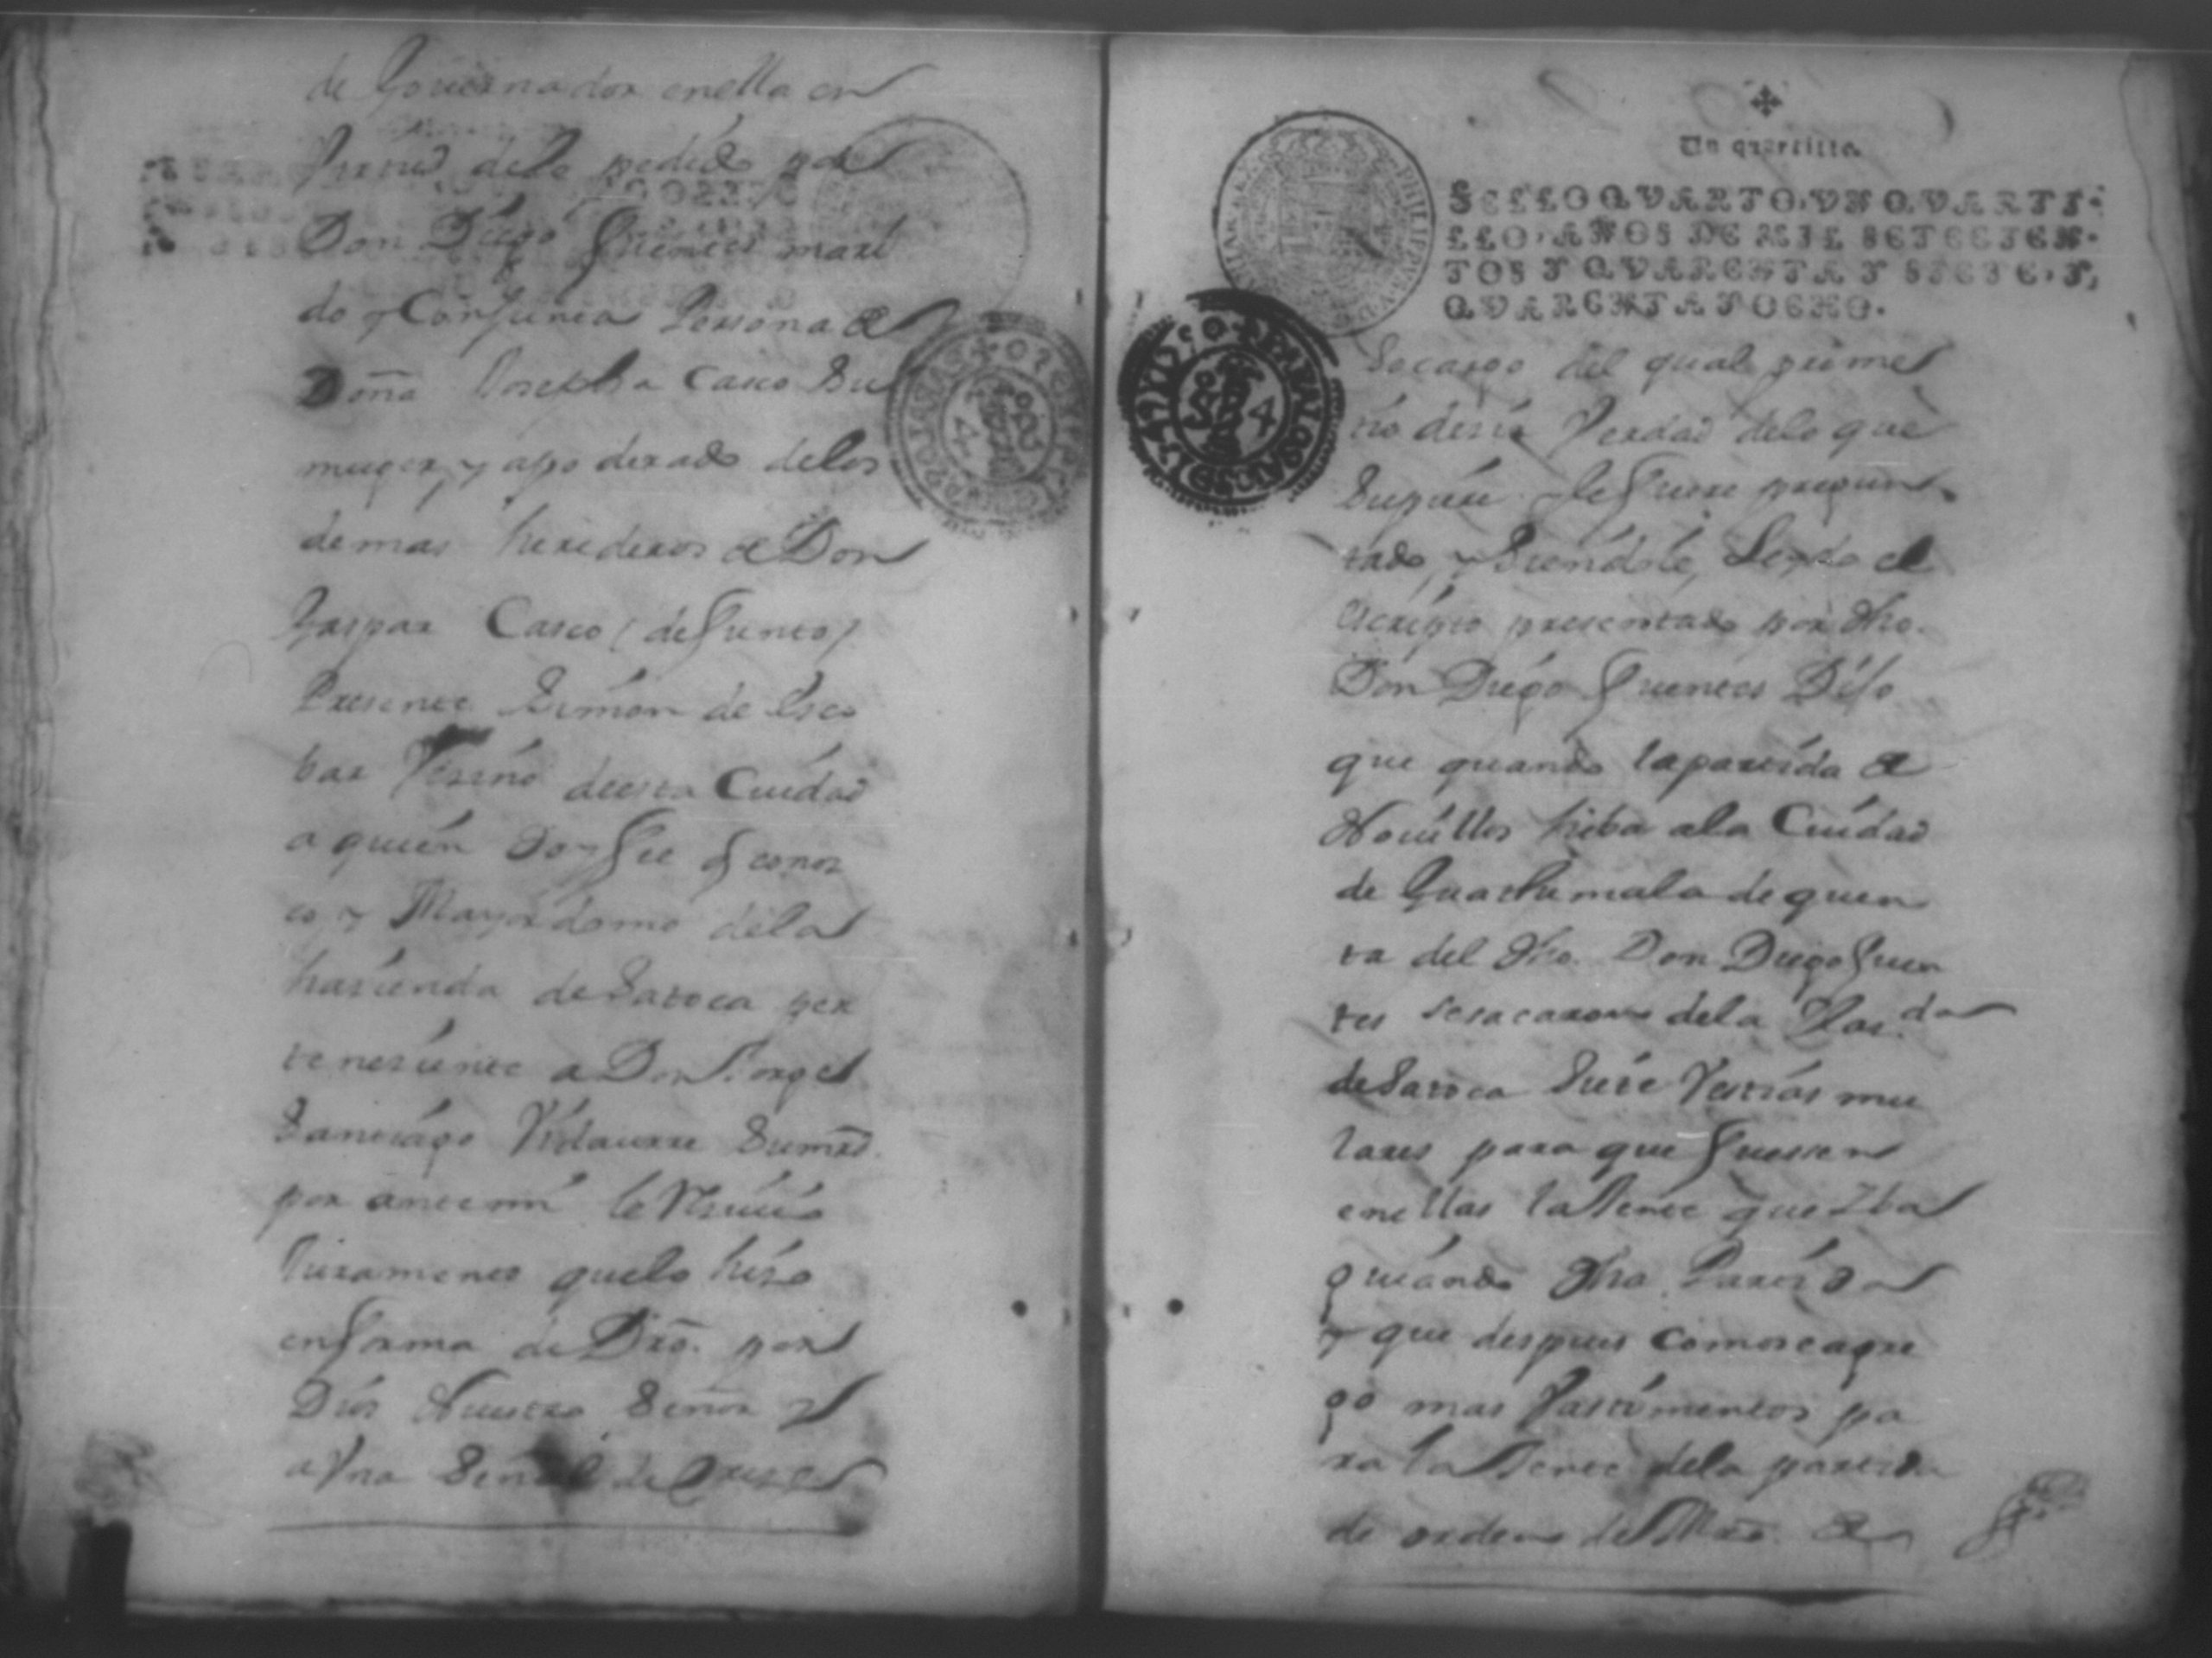 de Governador enella en
Virtud delo pedido por
Don Diego Fuentes mari
do y Conjunta Persona de
Doña Josepha Casco Su
muger, y apoderado delos
demas herederos de Don
Gaspar Casco (defunto)
Presente Simon de Esco
bar Vezino deesta Ciudad
a quien doy fee q conos
co y Mayordomo dela
hasienda de Satoca per
teneziente a Don Jorge
Santiago Vidaurre Sumrd.
por antemi le Rezivió
Juramento quelo hizo
enforma de Dro. por
Dios Nuestro Señor y
a Vna Señal de Cruz
Un quartillo.
SELLO QVARTO, VN QVARTI-
LLO, AÑOS DE MIL SETECIEN-
TOS Y QVARENTA Y SIETE, Y,
QVARENTA Y OCHO.
Socargo del qual prome
tió desir Verdad delo que
Supiere y le fuere pregun
tado, y Siendole Leydo el
Escripto presentado por dho.
Don Diego Fuentes Dijo
que quando lapartida de
Novillos hiba ala Ciudad
de Guathemala de quen
ta del dho. Don Diego Fuen
tes sesacaron dela Has.da
de Satoca Siete Vestias mu
lares para que fuessen
enellas laJente que Iba
guiando dha Partida
y que despues Comoseagre
gó mas Vastimentos pa
ra laJente dela partida
de orden del Mro. de